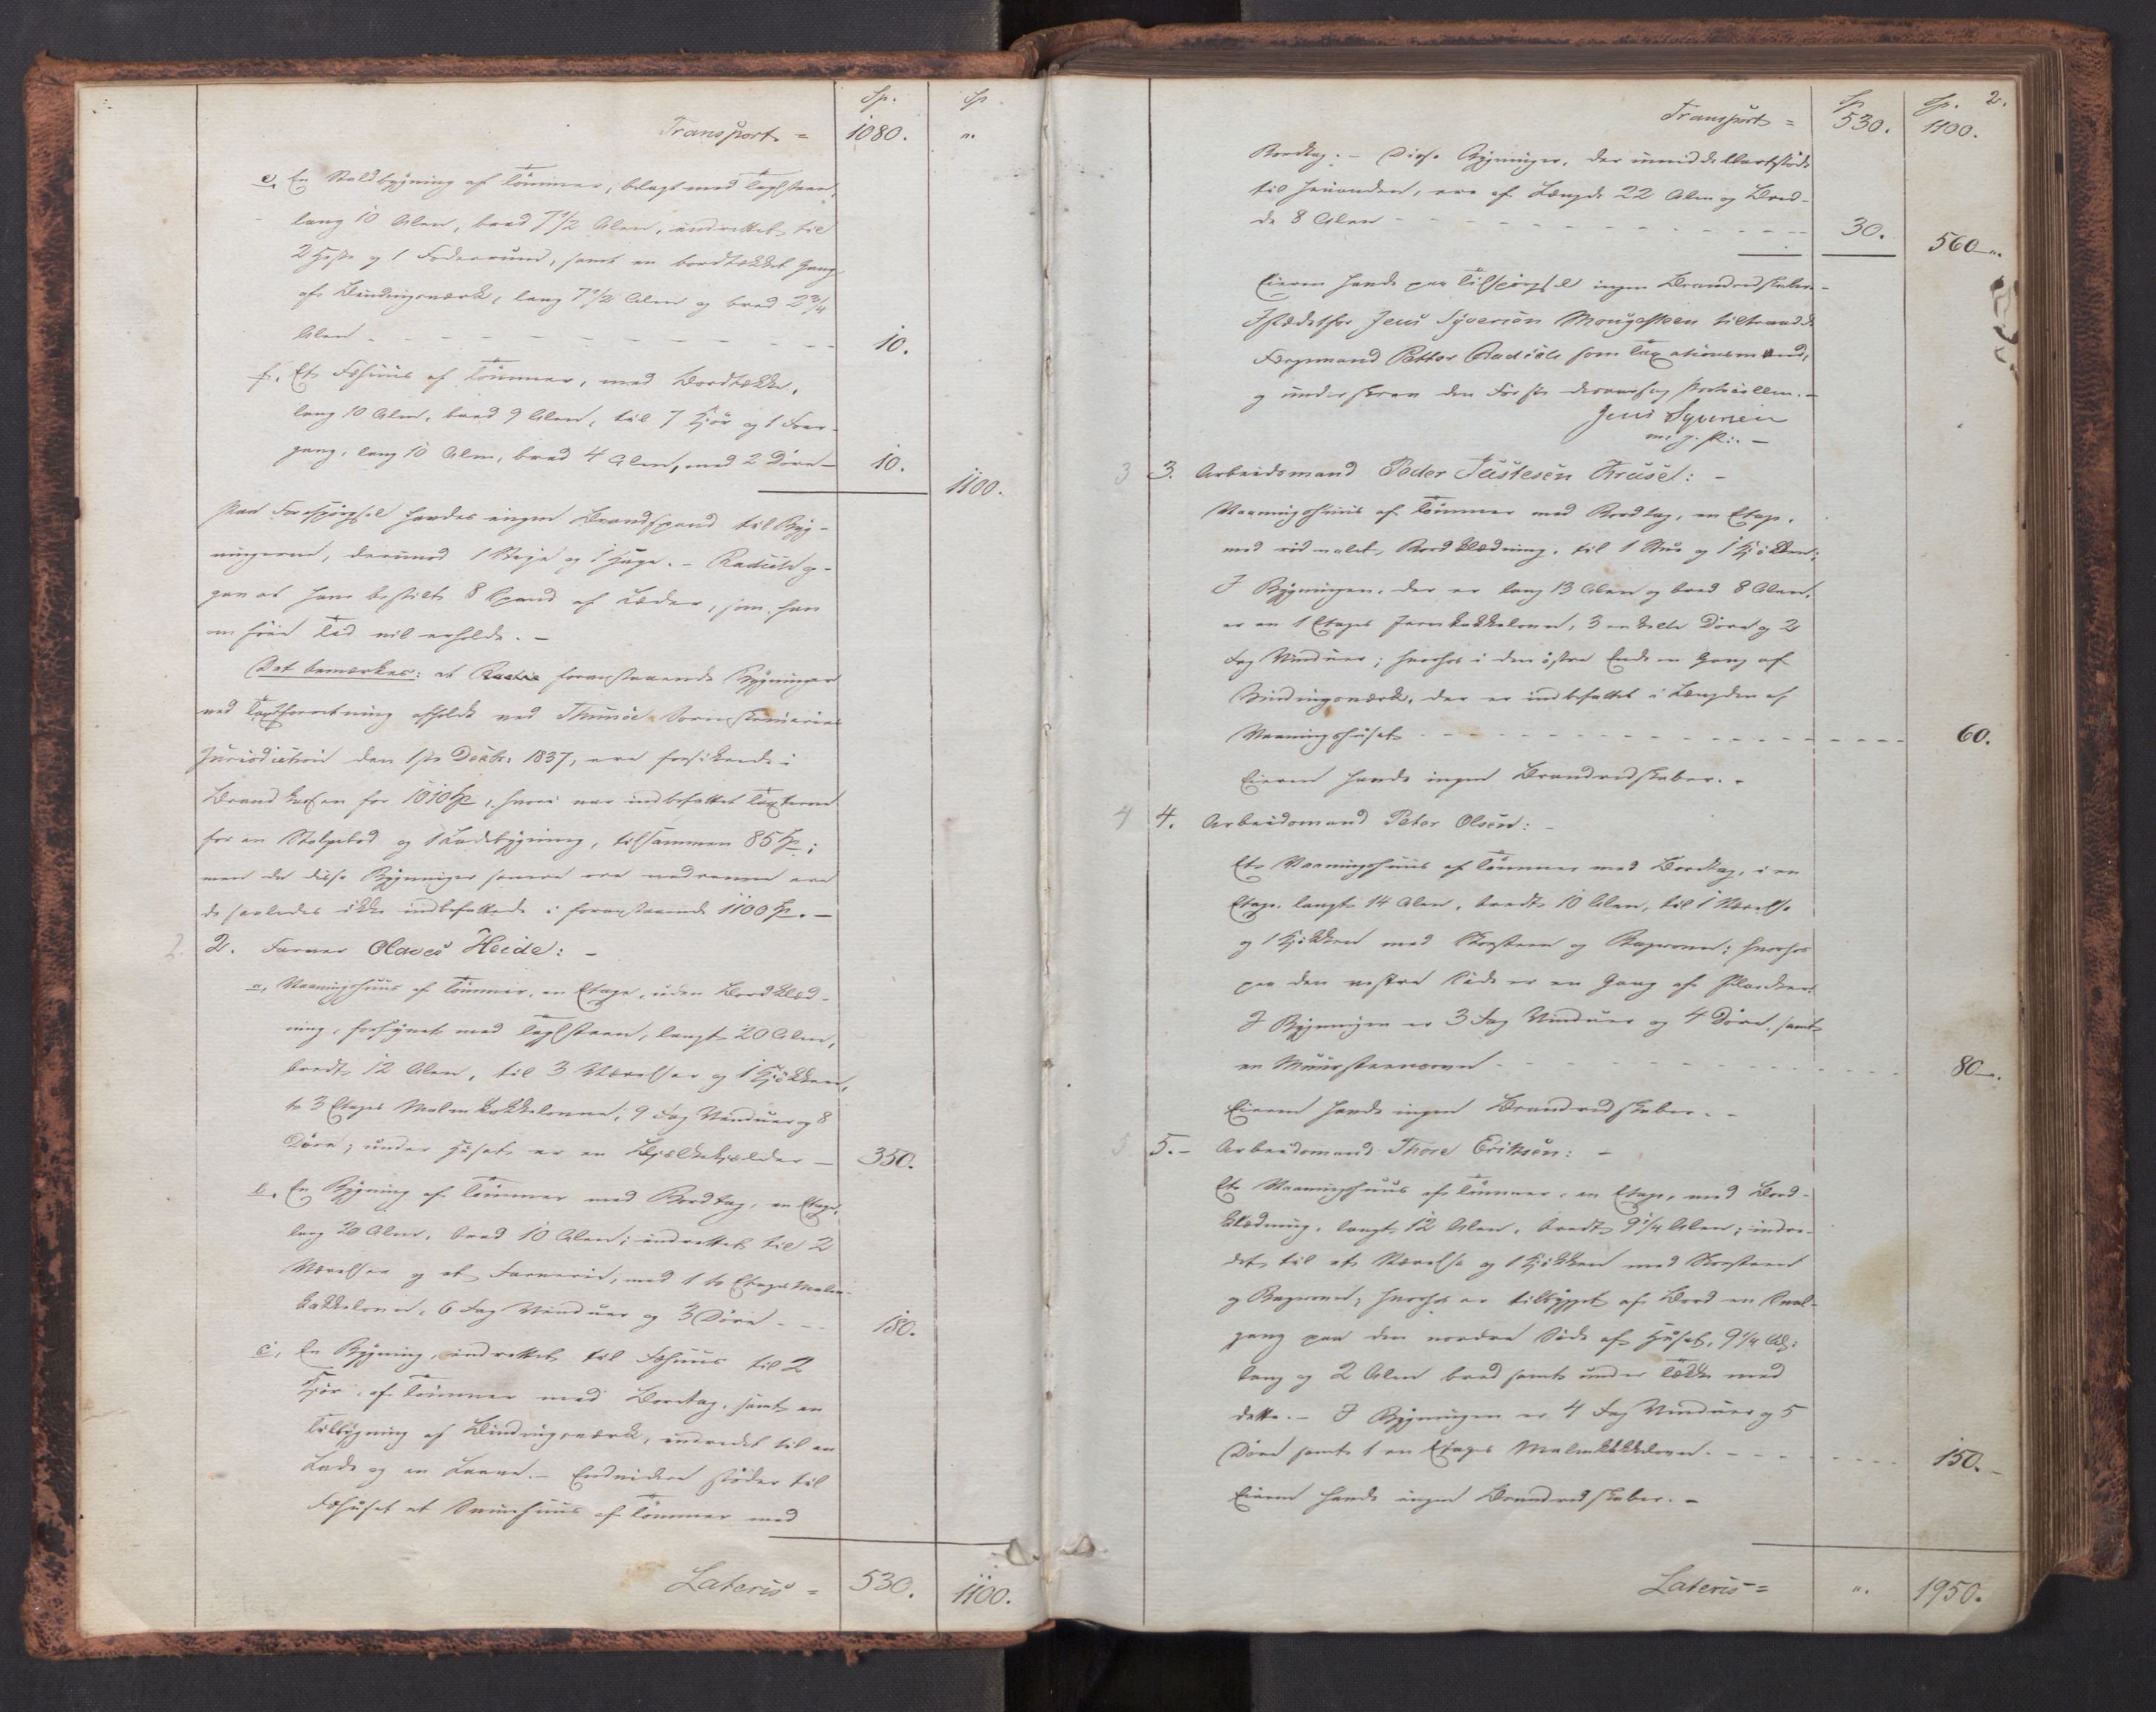 Sp. Sp
Transport = 1080. „.
e, En Staldbygning af Tömmer, belagt med Taghsteen,
lang 10 Alen, bred 7 1/2 Alen, indrettet til
2 Heste og 1 Foderrum, samt en bordtækket Gang
af Bindingsværk, lang 7 1/2 Alen og bred 2 3/4
Alen - - - - 10.
f, Et Fæhuus af Tömmer, med Bordtække,
lang 10 Alen, bred 9 Alen, til 7 Kjør og 1 Foer-
gang, lang 10 Alen, bred 4 Alen, med 2 Döre — 10. 1100.
Paa Forespörgsel havdes ingen Brandspand til Byg-
ningerne, derimod 1 Stige og 1 Hage. - Radich
gav at have bestilt 8 Spand af Læder, som han
om föie Tid vil erholde. —
Det bemærkes: at foranstaaende Bygninger
ved Taxtforretning afholdt ved Thumöe Sorenskriveries
Jurisdiction den 1ste Decbr. 1837, ere forsikrede i
Brandkassen for 1010 Sp, hvori var indbefattet Taxterne
for en Stolpebod og 1 Ladebygning, tilsammen 85 Sp;
men da disse Bygninger senere ere nedrevne ere
de saaledes ikke indbefattede i foranstaaende 1100 Sp. —
2. 2. Farver Olaves Heide: —
a, Vaaningshuus af Tömmer, en Etage, uden Bordklæd-
ning, forsynet med Taghsteen, langt 20 Alen,
bredt 12 Alen, til 3 Værelser og 1 Kjökken,
to 3 Etages Malmkakkelovne, 9 Fag Vinduer og 8
Döre; under Huset er en Bjelkekjelder — 350.
b. En Bygning af Tömmer med Bordtag, en Etage,
lang 20 Alen, bred 10 Alen; indrettet til 2
Værelser og et Farverie, med 1 to Etages Malm-
kakkelovn, 6 Fag Vinduer og 3 Döre - - - 180.
c, En Bygning, indrettet til Fæhuus til 2
Kjör, af Tömmer med Bordtag, samt en
Tilbygning af Bindingsværk, indredet til en
Lade og en Laave. — Endvidere støder til
Fæhuset et Sviinehuus af Tömmer med
Lateris = 530. 1100.
Sp Sp. 2.
Transport = 530. 1100.
Bordtag. — Disse Bygninger, der umiddelbart støde
til hinanden, ere af Længde 22 Alen og Bred-
de 8 Alen - - - - 30. 560 „.
Eieren havde paa Tilspörgsel ingen Brandredskaber —
Istedetfor Jens Syversen Mougesteen tiltraadte
Færgemand Petter Radich som Taxationsmand,
og underskrev den Förste desaarsag Protocollen. —
Jens Syversen
m. p. P: —
3 3. Arbeidsmand Peder Justesen Krusel: —
Vaaningshuus af Tömmer med Bordtag, en Etage,
med rödmalet Bordklædning, til 1 Stue og 1 Kjökken;
I Bygningen, der er lang 13 Alen og bred 8 Alen,
er en 1 Etages Jernkakkelovn, 3 enkelte Döre og 2
Fag Vinduer; hvorhos i den østre Ende en Gang af
Bindingsværk, der er indbefattet i Længden af
Vaaningshuset - - - - 60.
Eieren havde ingen Brandredskaber. —
4 4. Arbeidsmand Peter Olsen: —
Et Vaaningshuus af Tömmer med Bordtag, i en
Etage, langt 14 Alen, bredt 10 Alen, til 1 Værelse
og 1 Kjökken med Skorsteen og Bagerovn; hvorhos
paa den vestre Side er en Gang af Planker.
I Bygningen er 3 Fag Vinduer og 4 Döre, samt
en Muursteensovn - - - - 80 —.
Eieren havde ingen Brandredskaber. —
5 5. — Arbeidsmand Thore Eriksen: —
Et Vaaningshuus af Tömmer, en Etage, med Bord-
klædning, langt 12 Alen, bredt 9 1/4 Alen; indre-
det til et Værelse og 1 Kjökken med Skorsteen
og Bagerovn; hvorhos er tilbygget af Bord en Sval-
gang paa den nordre Side af Huset, 9 1/4 Al:
lang og 2 Alen bred samt under Tække med
dette. — I Bygningen er 4 Fag Vinduer og 5
Döre samt 1 en Etages Malmkakkelovn. - - - 150. —
Eieren havde ingen Brandredskaber. —
Lateris = „. 1950.